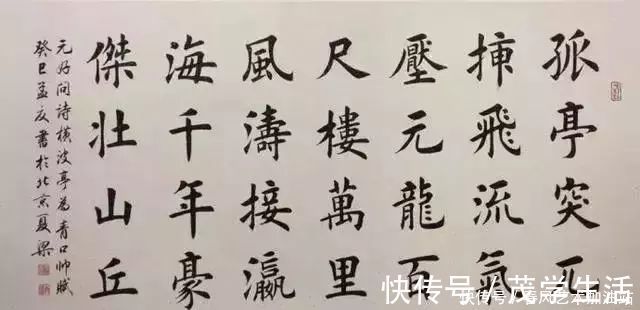 孤亭突兀
挿飛流氣
壓元龍百
尺樓萬里
風濤接瀛
海千年豪
傑壯山丘
元好问诗横波亭为青口帅赋
癸巳孟夏書於北京夏梁
快传号/茂学生活